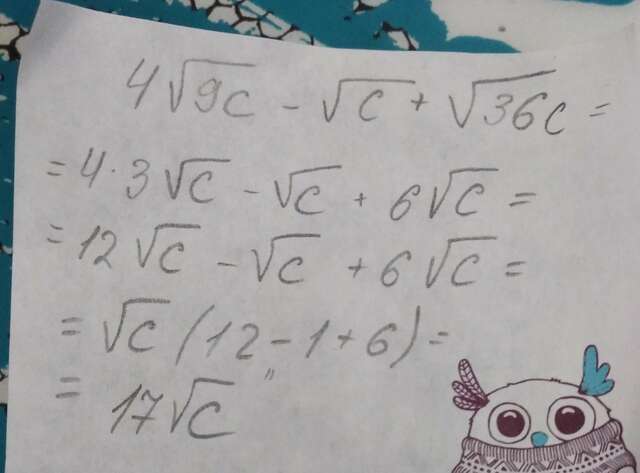 4√9c - √c + √36c =
= 4·3√c - √c + 6√c =
= 12√c - √c + 6√c =
= √c (12 - 1 + 6) =
= 17√c